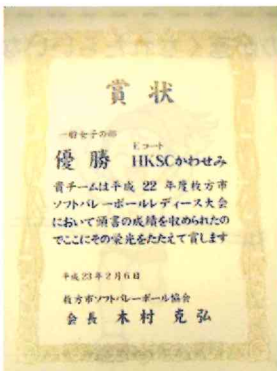 賞状
一般女子の部
Eコート
優勝 HKSCかわせみ
貴チームは平成 22 年度枚方市
ソフトバレーボールレディース大会
において頭書の成績を収められたの
でここにその栄光をたたえて賞します
平成23年2月6日
枚方市ソフトバレーボール協会
会長 木村 克弘